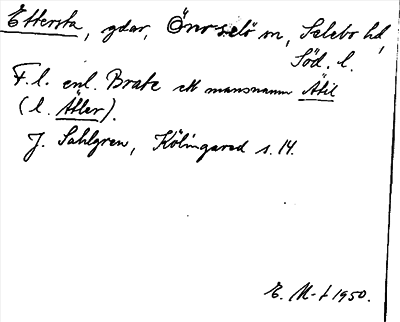 Ettersta, gdar, Överselö sn, Selebo hd,
Söd. l.
F. l. enl. Brate ett mansnamn Ätil
(l. Ätler).
J. Sahlgren, Kölingared s. 14.
E. M-t 1950.